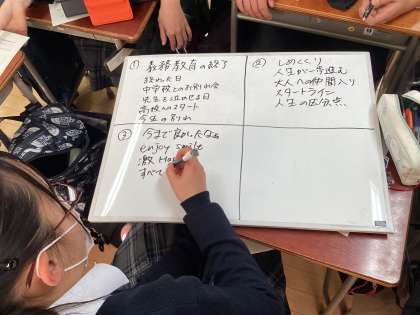 ① 義務教育の終了
終わった日
中学校とのお別れ会
先生を泣かせる日
高校へのスタート
今生の別れ
② 今まで良かったなぁ
enjoy smile
激
すべて
③ しめくくり
人生が一歩進む
大人への仲間入り
スタートライン
人生の区分さ、